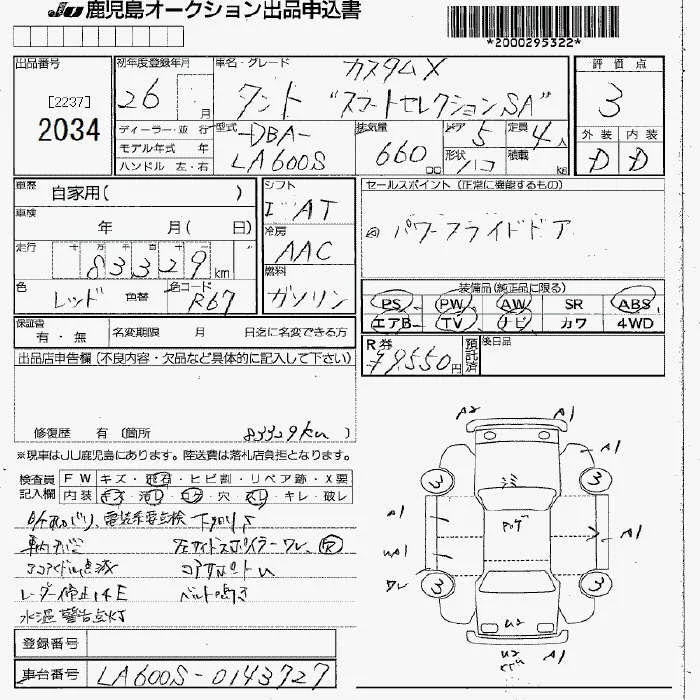 JU 鹿児島オークション出品申込書
*2000295322*
出品番号
[2237]
2034
初年度登録年月
26 月
ディーラー・並 行
モデル年式 年
ハンドル 左・右
車名・グレード
カスタムX
タント "スマートセレクションSA"
型式
-DBA-
LA600S
排気量
660
cc
ドア 5
定員 4人
形状 ハコ
積載 kg
評価点
3
外装 内装
D D
車歴
自家用( )
車検
年 月( 日)
走行
十 万 千 百 十 一
83329km
色
レッド 色替
色コード
R67
シフト
I AT
冷房
AAC
燃料
ガソリン
セールスポイント (正常に機能するもの)
パワースライドドア
装備品(純正品に限る)
PS PW AW SR ABS
エアB TV ナビ カワ 4WD
保証書
有・無
名変期限 月 日迄に名変できる方
R券
¥9,550円
預託済
後日品
出品店申告欄(不良内容・欠品など具体的に記入して下さい)
修復歴 有 〔箇所 83329km 〕
※現車はJU鹿児島にあります。陸送費は落札店負担となります。
検査員
記入欄
FW キズ・飛石・ヒビ割・リペア跡・X要
内装 キズ・汚レ・コゲ・穴・スレ・キレ・破レ
電装系要点検 下回りS
車内
左サイドスポイラーワレ
コアサポート
レーダー停止
ベルト鳴き
水温警告点灯
登録番号
車台番号 LA600S-0143727
A2 A1
A1
3 3
A1
UA1
ワレ
A1
3 3
U2
U2
A1